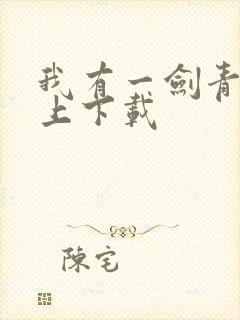 我有一劍青
上下載
陳宅